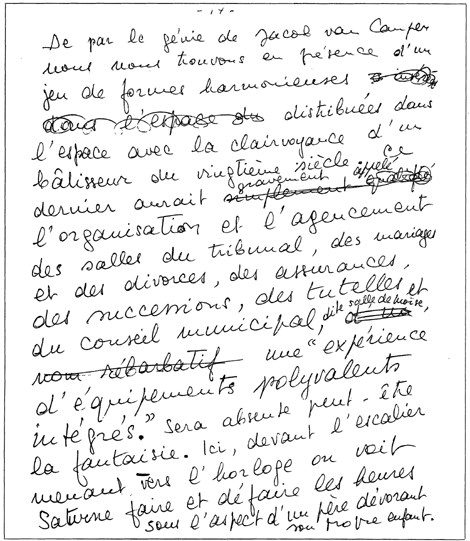 - 14 -
De par le génie de Jacob van Campen
nous nous trouvons en présence d'un
jeu de formes harmonieuses
dans l'espace du distribuées dans
l'espace avec la clairvoyance d'un
bâtisseur du vingtième siècle. Ce
dernier aurait gravement simplement appelé
l'organisation et l'agencement
des salles du tribunal, des mariages
et des divorces, des assurances,
des successions, des tutelles et
du conseil municipal, dite salle de Moïse,
nom rébarbatif une "expérience
d'équipements polyvalents
intégrés." Sera absente peut-être
la fantaisie. Ici, devant l'escalier
menant vers l'horloge on voit
Saturne faire et défaire les heures
sous l'aspect d'un père dévorant
son propre enfant.